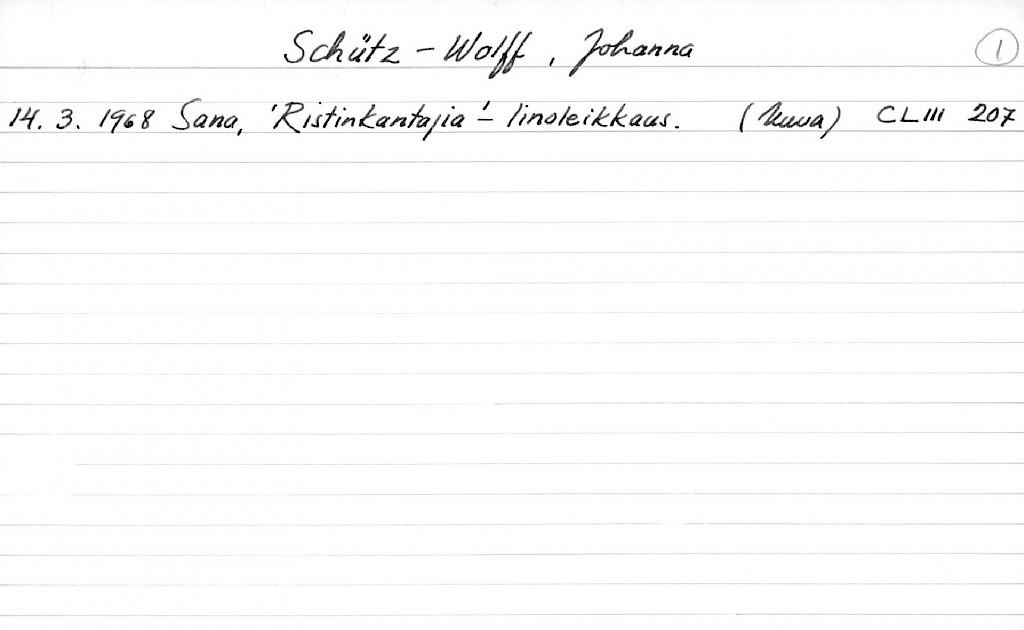 Schütz - Wolff, Johanna 1
14. 3. 1968 Sana, 'Ristinkantajia' - linoleikkaus. (Kuva) CLIII 207